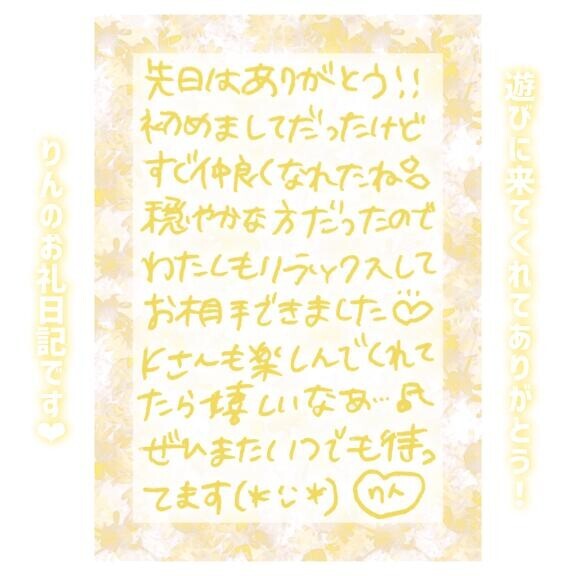 遊びに来てくれてありがとう！
先日はありがとう!!
初めましてだったけど
すぐ仲良くなれたね
穏やかな方だったので
わたしもリラックスして
お相手できました♡
Kさんも楽しんでくれて
たら嬉しいなぁ…♪
ぜひまたいつでも待っ
てます(*¨*)
りん
りんのお礼日記です❤